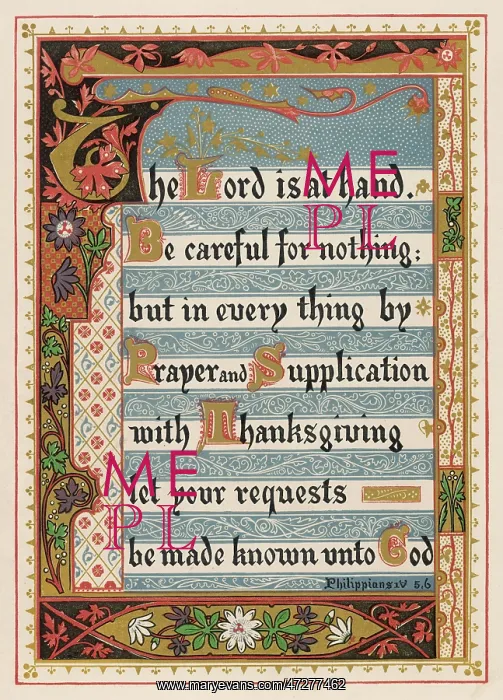 The Lord is at hand.
Be careful for nothing:
but in every thing by
Prayer and Supplication
with Thanksgiving
let your requests
be made known vnto God
Philippians IV 5,6
ME
PL
ME
PL
www.maryevans.com/47277462